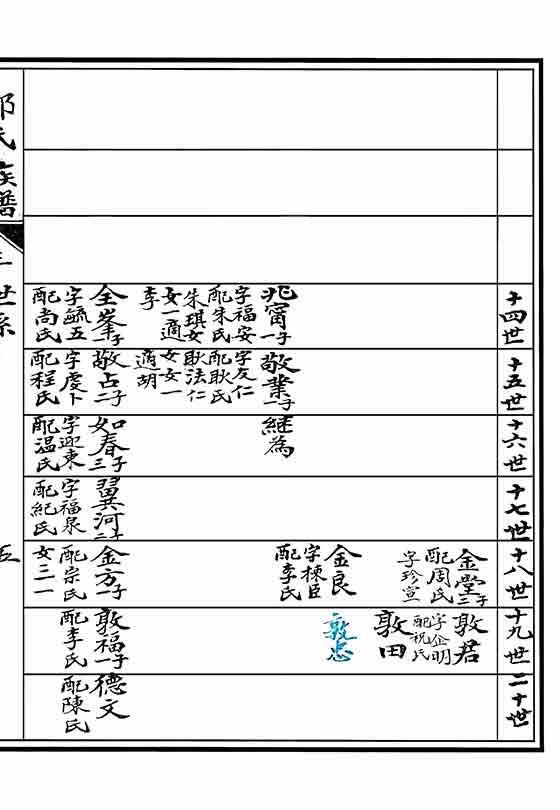 十四世
兆甯一子
字福安
配朱氏
朱琪女
女一適
李
全峯一子
字毓五
配尚氏
十五世
敬業一子
字友仁
配耿氏
耿法仁
女女一
適胡
敬占二子
字虔卜
配程氏
十六世
継為
如春三子
字迎東
配温氏
十七世
翼河二子
字福泉
配紀氏
十八世
金堂二子
配周氏
字珍宣
金良
字棟臣
配李氏
金方一子
配宗氏
女三一
十九世
敦君
字企明
配祝氏
敦田
敦忠
敦福一子
配李氏
二十世
德文
配陳氏
氏族譜
世系
五